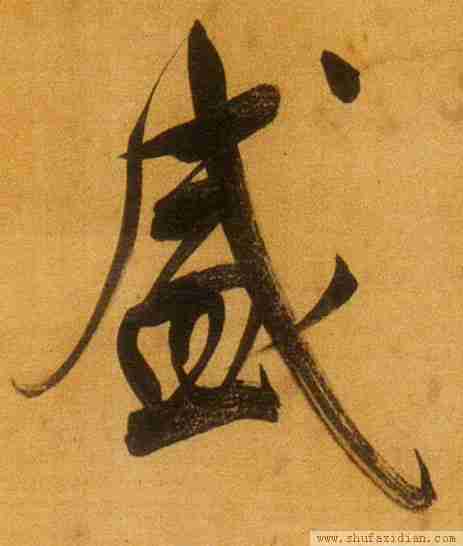 盛
www.shufaxidian.com